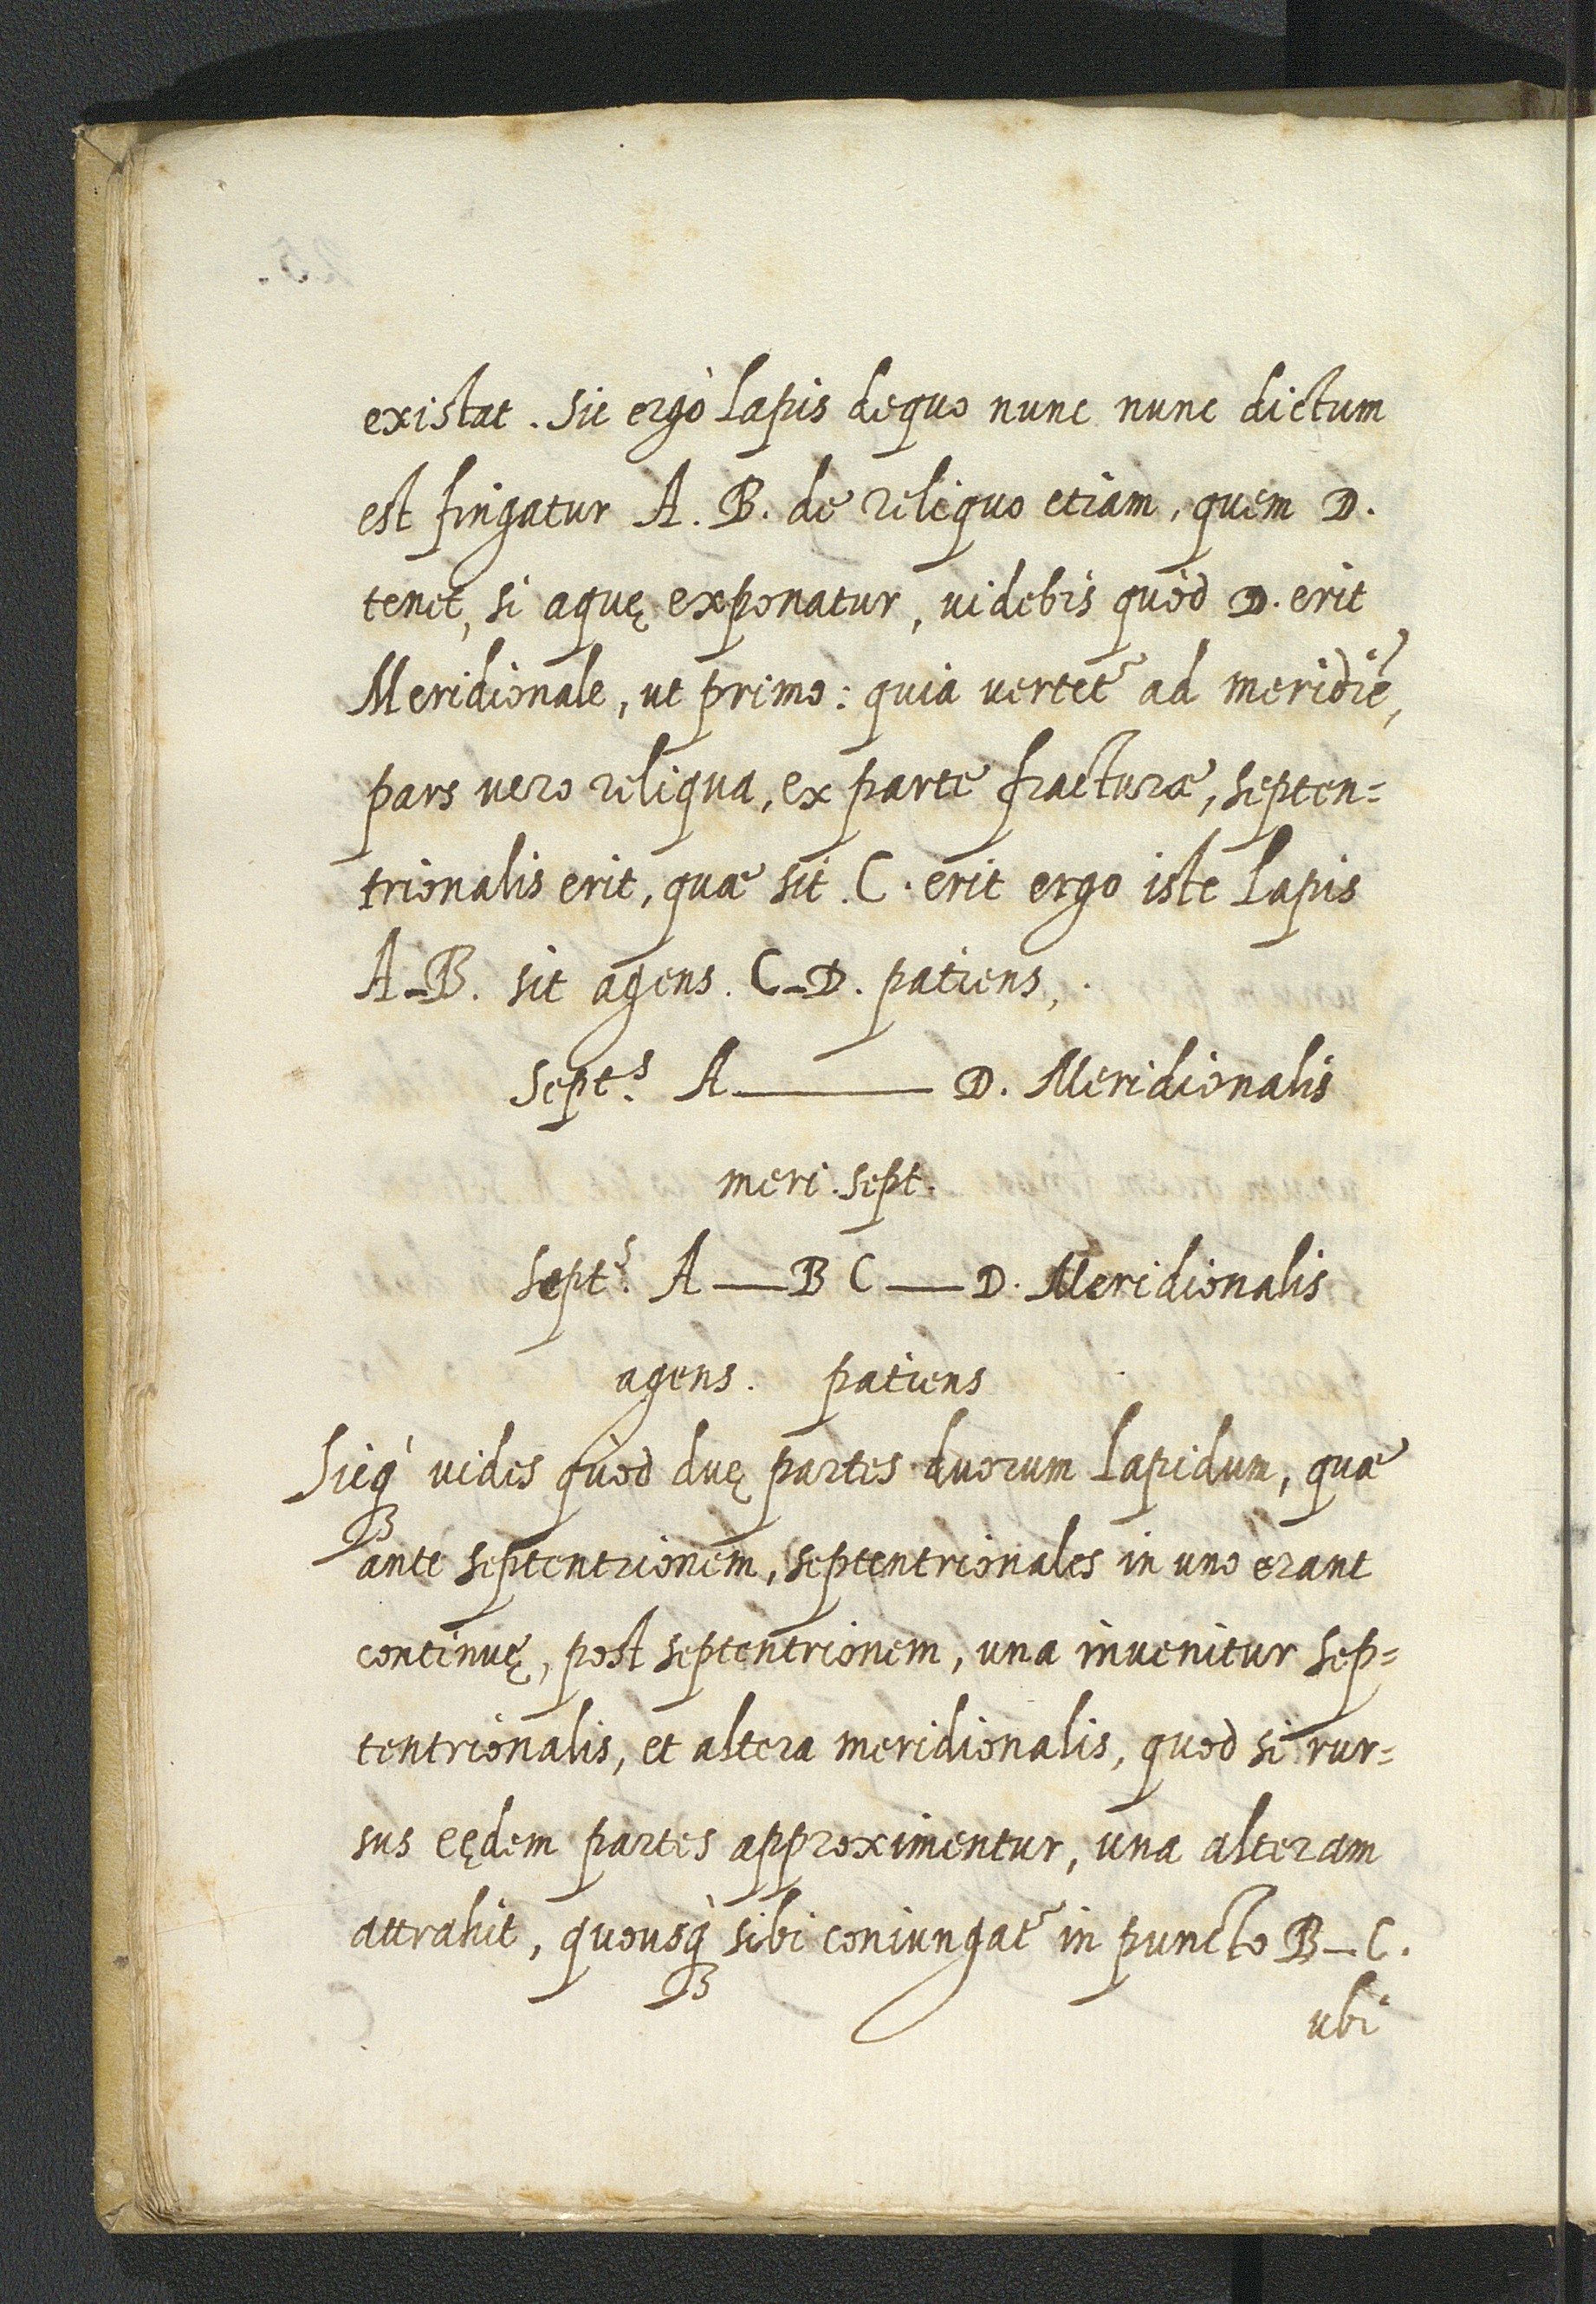 existat. Sit ergò Lapis de quo nunc nunc dictum
est fingatur A. B. de reliquo etiam, quem D.
tenet, si aquę exponatur, uidebis quòd D. erit
Meridionale, ut primo: quia vertet̃ ad meridiẽ,
pars uero reliqua, ex parte fracturæ, septen=
trionalis erit, quæ sit. C. erit ergo iste Lapis
A_B. sit agens. C_D. patiens,.
Sept.s A——— D. Meridionalis
meri. sept.
Sept.s A — B C — D. Meridionalis
agens. patiens
Sicq́ uides quòd duę partes duorum Lapidum, quæ
ante septentrionem, septentrionales in uno erant
continuę, post septentrionem, una inuenitur sep=
tentrionalis, et altera meridionalis, quod si rur=
sus eędem partes approximentur, una alteram
attrahit, quousq́ sibi coniungat̃ in puncto B_C.
ubi